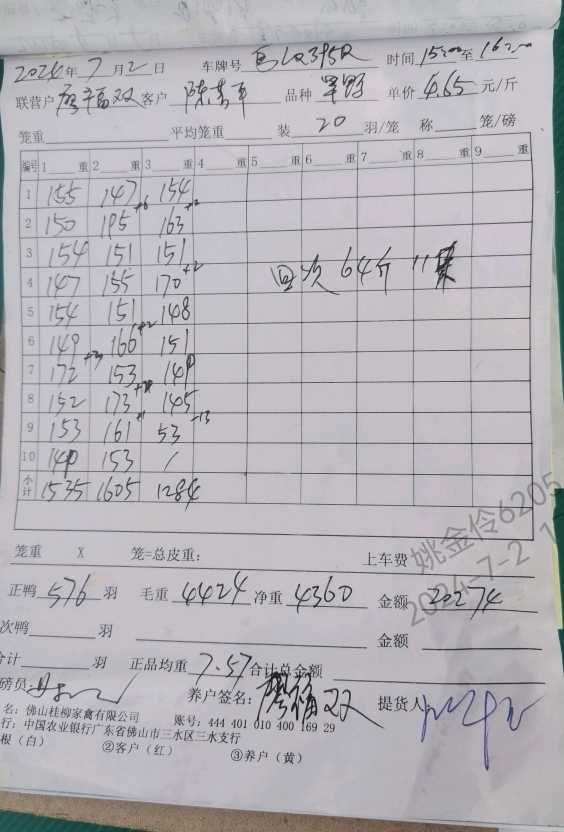 2024年7月2日 车牌号 时间 15:00至16:00
联营户 廖福双 客户 陈 品种 单价 4.65 元/斤
笼重 平均笼重 装 20 羽/笼 称 笼/磅
编号 1 重 2 重 3 重 4 重 5 重 6 重 7 重 8 重 9 重
1 155 147 154
2 150 195 +6 163 +2
3 154 151 151
4 147 155 170 +2
5 154 151 148
6 149 166 +2 151
7 172 +3 153 149
8 152 173 145
9 153 161 +1 53 -13
10 149 153 /
小计 1535 1605 1284
64斤 11
笼重 X 笼=总皮重: 上车费
正鸭 576 羽 毛重 4424 净重 4360 金额 20274
次鸭 羽 金额
合计 羽 正品均重 7.57 合计总金额
磅员: 养户签名: 廖福双 提货人
名: 佛山桂柳家禽有限公司 账号: 444 401 010 400 169 29
行: 中国农业银行广东省佛山市三水区三水支行
根(白) ②客户(红) ③养户(黄)
姚金伶6205
2024-7-2 1